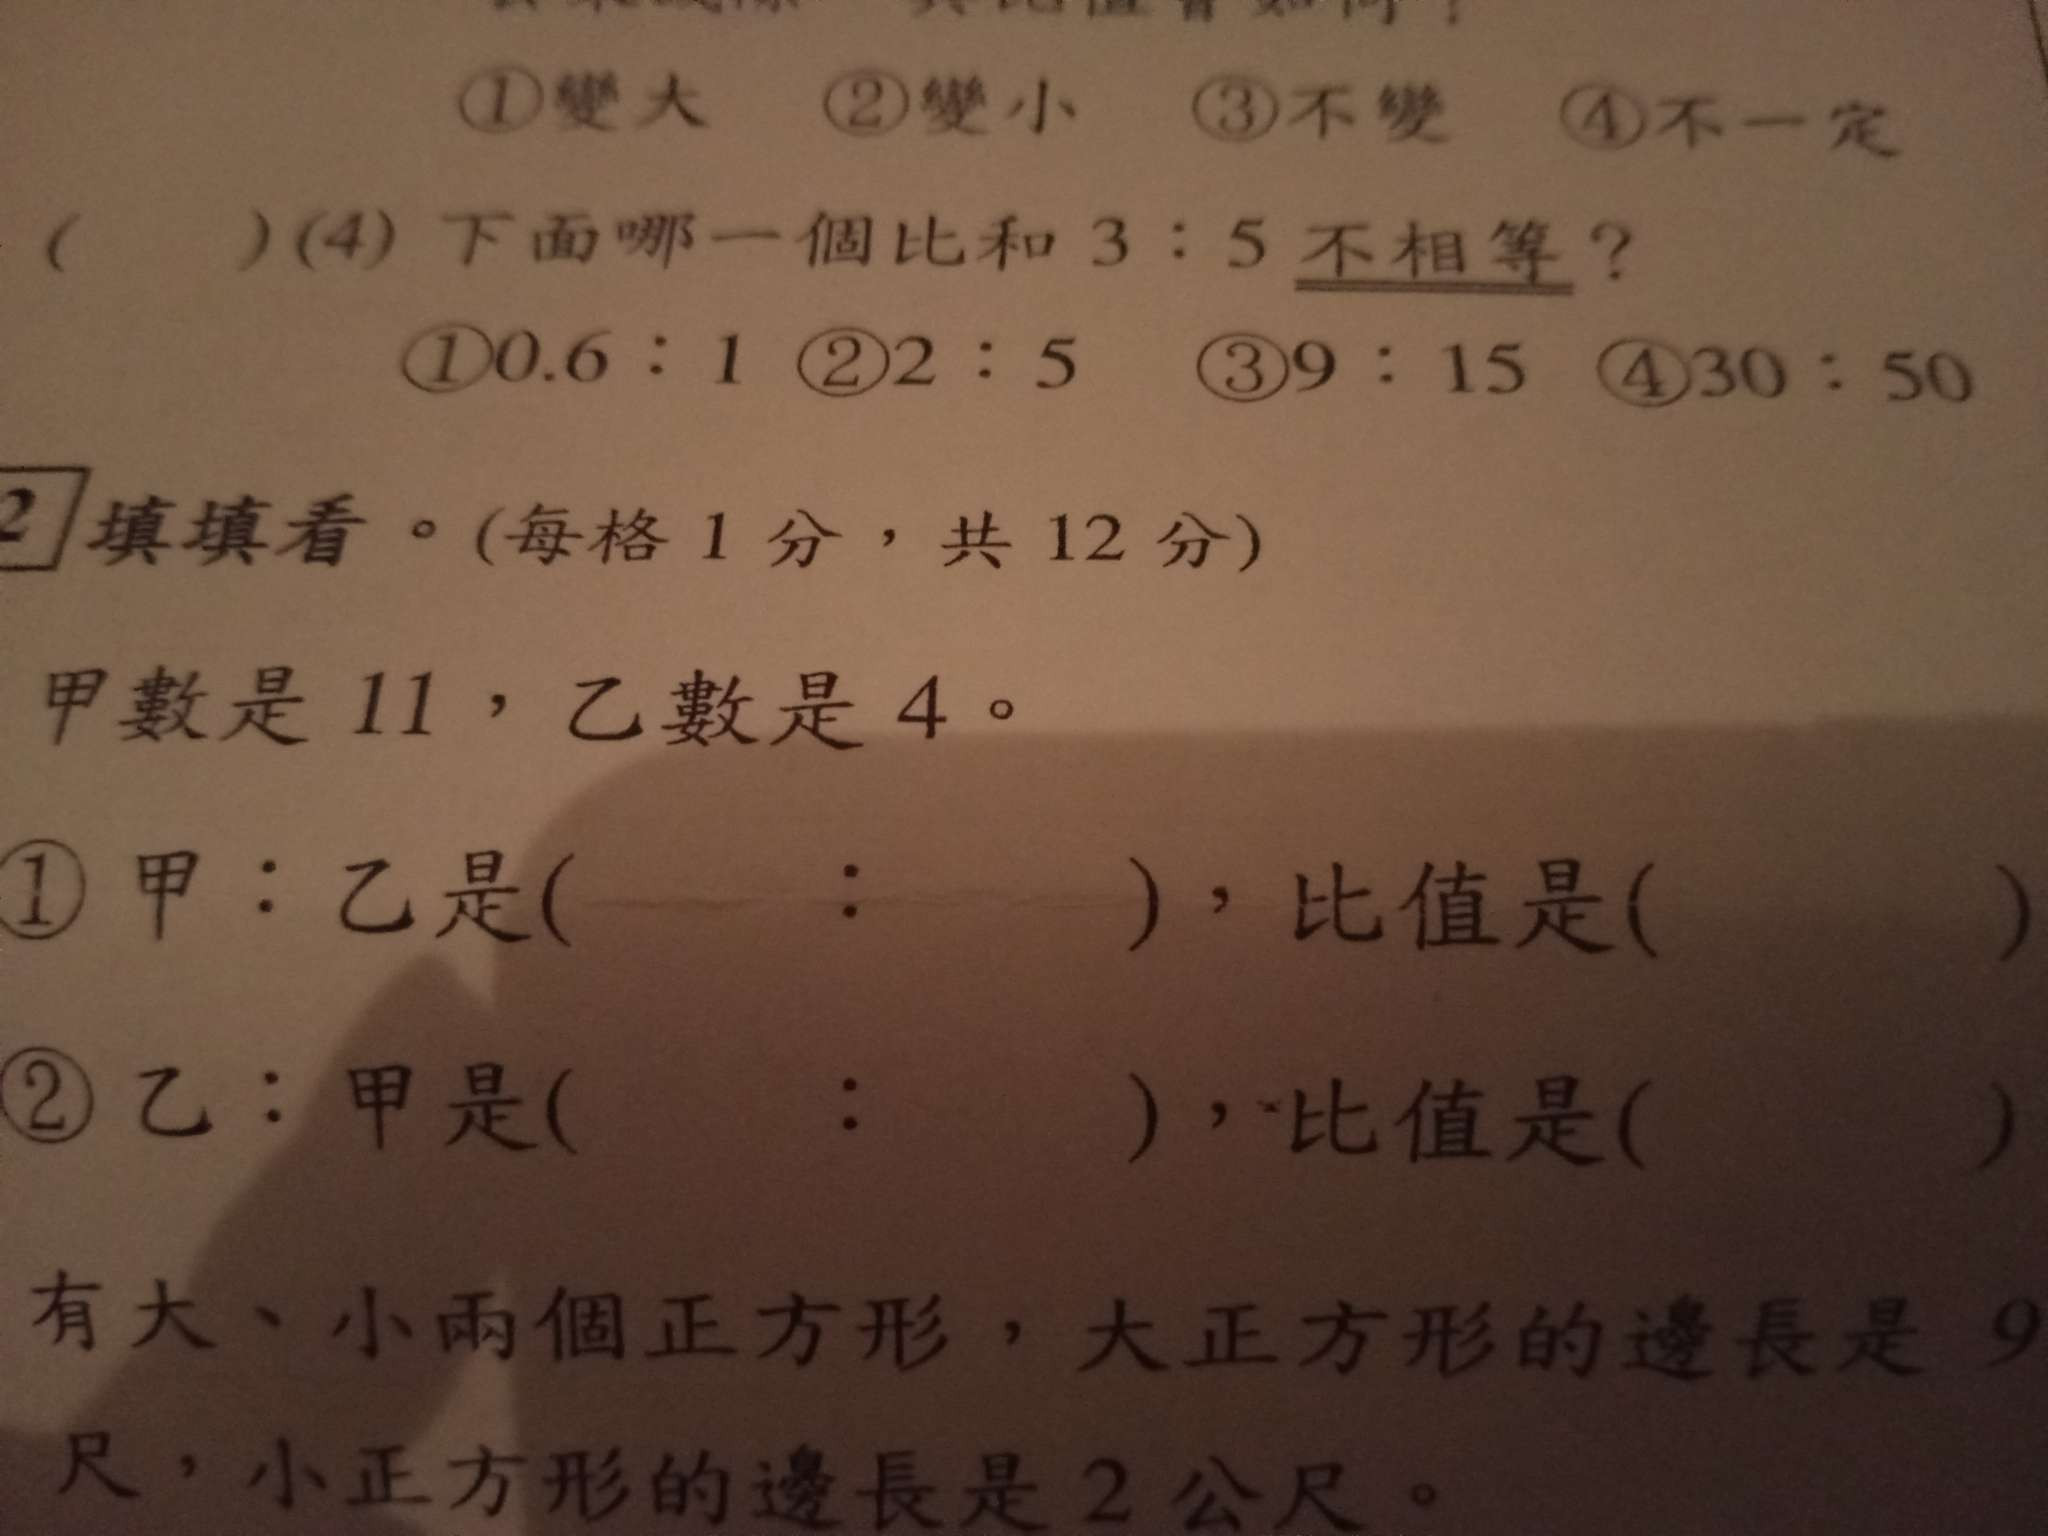 比值會如何？
①變大 ②變小 ③不變 ④不一定
( )(4) 下面哪一個比和 3：5 不相等？
①0.6：1 ②2：5 ③9：15 ④30：50
2 填填看。(每格 1 分，共 12 分)
甲數是 11，乙數是 4。
① 甲：乙是( ： )，比值是( )
② 乙：甲是( ： )，比值是( )
有大、小兩個正方形，大正方形的邊長是 9
尺，小正方形的邊長是 2 公尺。